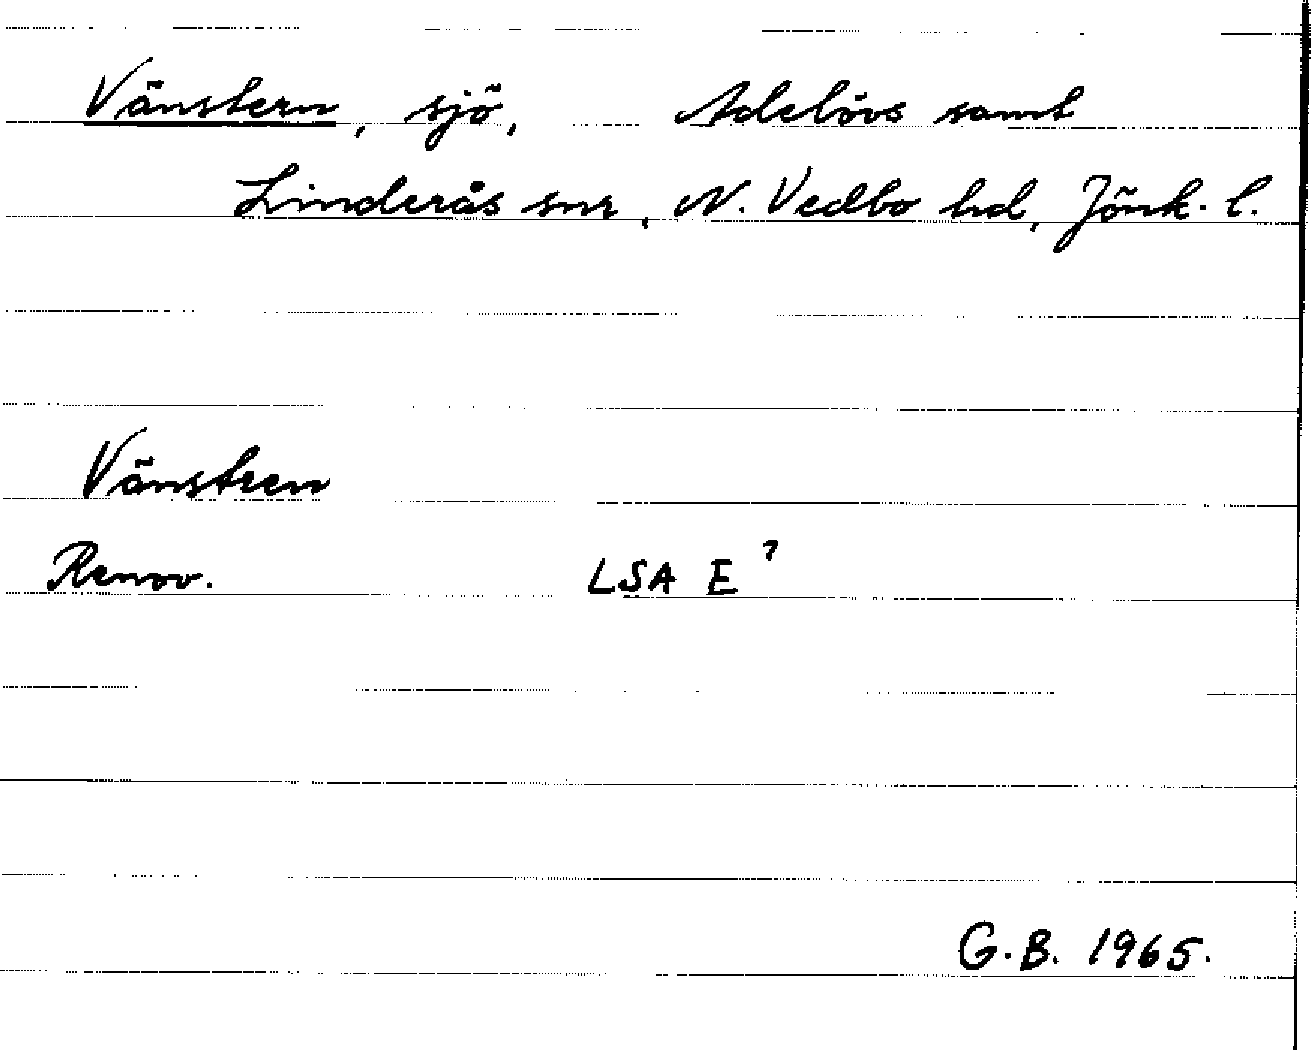 Vänstern, sjö, Adelövs samt
Linderås snr, N. Vedbo hd, Jönk. l.
Vänstren
Renov. LSA E⁷
G.B. 1965.